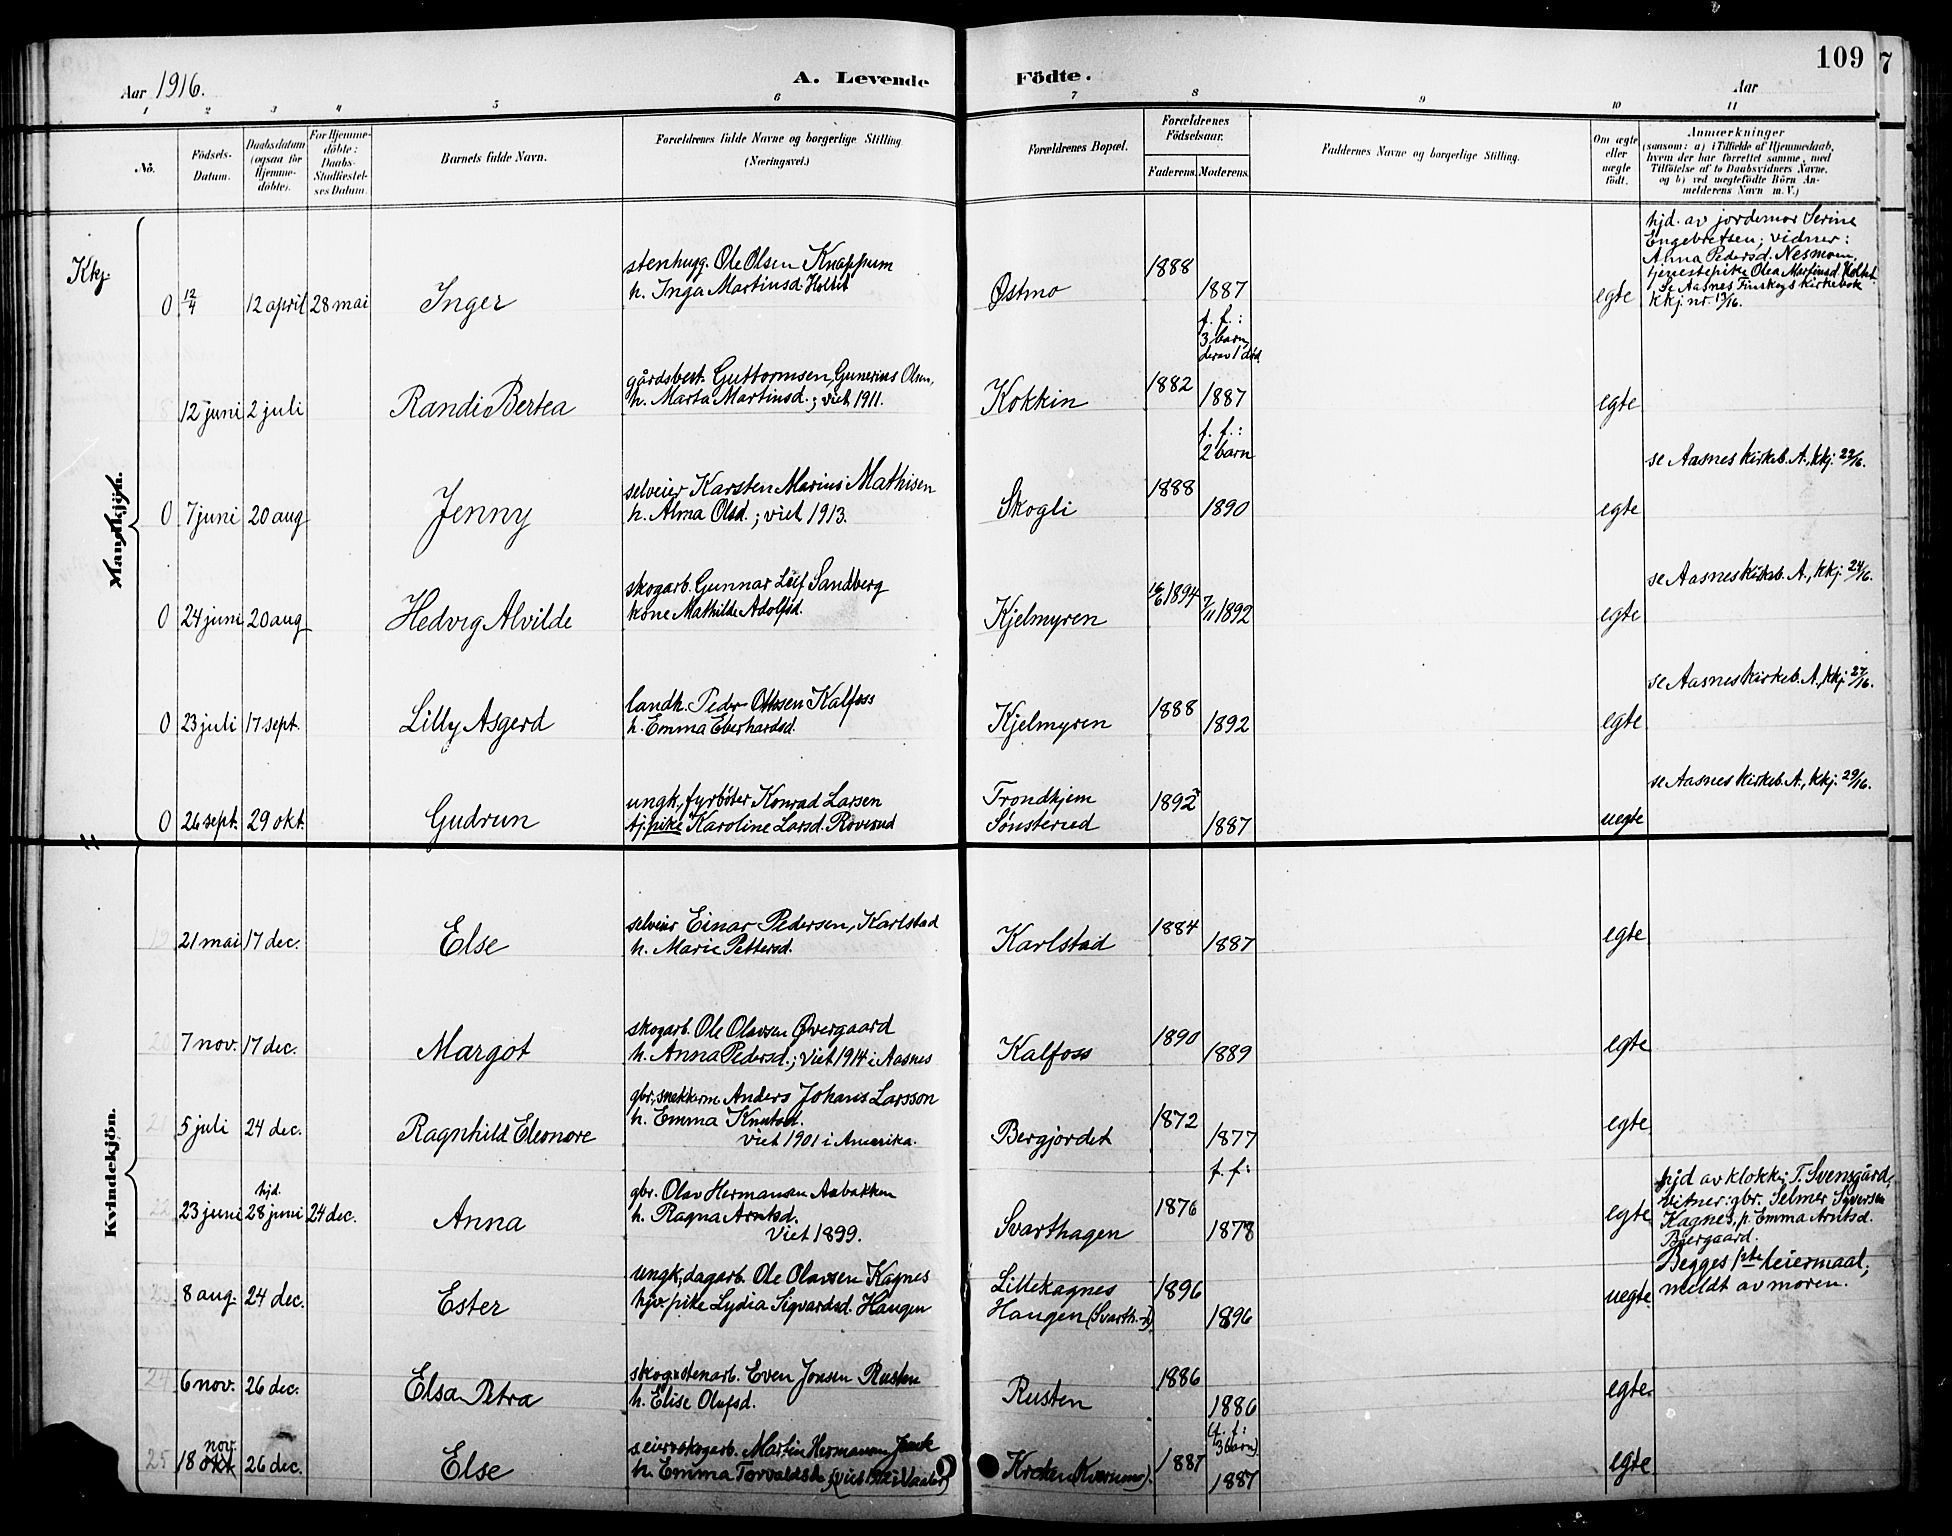 109
7
Aar 1916.
A. Levende
Födte.
Aar
1 2 3 4 5 6 7 8 9 10 11
No.
Födsels-
Datum.
Daabsdatum
(ogsaa for
Hjemme-
döbte).
For Hjemme-
döbte:
Daabs-
Stadfæstel-
ses Datum.
Barnets fulde Navn.
Forældrenes fulde Navne og borgerlige Stilling
(Næringsvei.)
Forældrenes Bopæl.
Forældrenes
Födselsaar.
Faderens. Moderens.
Faddernes Navne og borgerlige Stilling.
Om ægte
eller
uægte
födt.
Anmærkninger
(saasom: a) i Tilfælde af Hjemmedaab,
hvem der har forrettet samme, med
Tilföielse af to Daabsvidners Navne,
og b) ved uægtefödte Börn An-
melderens Navn m. V.)
Kkj.
Mandkjön.
0 12/4 12 april 28 mai Inger
stenhugg. Ole Olsen Knappum
h. Inga Martinsd. Holtet
Østmo 1888 1887
f. f.:
3 barn,
derav 1 død
egte
hjd. av jordemor Serine
Engebretsen; vidner:
Anna Pedersd. Nesmoen,
tjenestepike Olea Martinsd. Holtet.
Se Aasnes Finskogs kirkebok
kkj. nr. 13/16.
12 juni 2 juli Randi Bertea
gårdsbest. Guttormsen, Gunerius Olsen,
h. Marta Martinsd.; viet 1911.
Kokkin 1882 1887
f. f.:
2 barn
egte
0 7 juni 20 aug Jenny
selveier Karsten Marius Mathisen
h. Alma Olsd.; viet 1913.
Skogli 1888 1890 egte
se Aasnes kirkeb. A., kkj. 22/16.
0 24 juni 20 aug Hedvig Alvilde
skogarb. Gunnar Leif Sandberg
kone Mathilde Adolfsd.
Kjelmyren 16/6 1894 7/11 1892 egte
se Aasnes kirkeb. A., kkj. 24/16.
0 23 juli 17 sept. Lilly Asgerd
landh. Peder Ottesen Kalfoss
h. Emma Eberhardsd.
Kjelmyren 1888 1892 egte
se Aasnes kirkeb. A., kkj. 27/16.
0 26 sept. 29 okt. Gudrun
ungk., fyrbøter Konrad Larsen
tj.pike Karoline Larsd. Roverud
Trondhjem
Sønsterud
1892 1887 uegte
se Aasnes kirkeb. A., kkj. 29/16.
Kvindekjön.
19 21 mai 17 dec. Else
selveier Einar Pedersen, Karlstad
h. Marie Pettersd.
Karlstad 1884 1887 egte
20 7 nov. 17 dec. Margot
skogarb. Ole Olavsen Øvergaard
h. Anna Pedersd.; viet 1914 i Aasnes
Kalfoss 1890 1889 egte
21 5 juli 24 dec. Ragnhild Eleonore
gbr., snekkerm. Anders Johans Larsson
h. Emma Knutsd.
viet 1901 i Amerika.
Bergjordet 1872 1877 egte
22 23 juni hjd. 28 juni 24 dec. Anna
gbr. Olav Hermansen Aabakken
h. Ragna Arntsd.
Viet 1899.
Svarthagen 1876
f. f:
1878 egte
hjd av klokker T. Svensgård,
vitner: gbr. Selmer Syversen
Kagnes, p. Emma Arntsd.
Bjergaard.
23 8 aug. 24 dec. Ester
ungk., dagarb. Ole Olavsen Kagnes
hjv. pike Lydia Sigvardsd. Haugen
Lillekagnes
Haugen (Svarth.)
1896 1896 uegte
Begges 1ste leiermaal;
meldt av moren.
24 6 nov. 26 dec. Elsa Petra
skog.stenarb. Even Jonsen Rusten
h. Elise Olufsd.
Rusten 1886 1886 egte.
25 18 nov okt 26 dec. Else
h. Emma
1887
(f. f:
3 barn)
1887 egte.